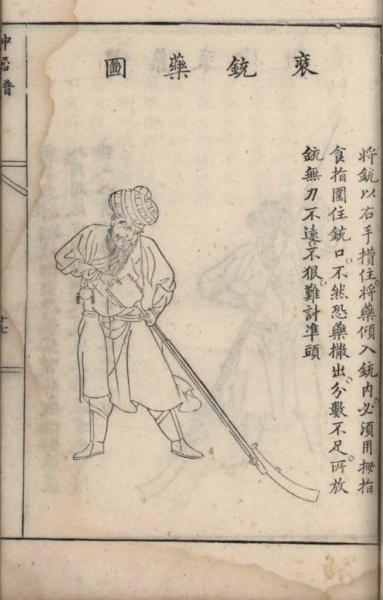 銃藥圖
將銃以右手揝住。將藥傾入銃内。必須用拇指
食指圍住銃口。不然恐藥撒出分數不足。所放
銃無力不遠。不狠難計凖頭
神器譜
十七